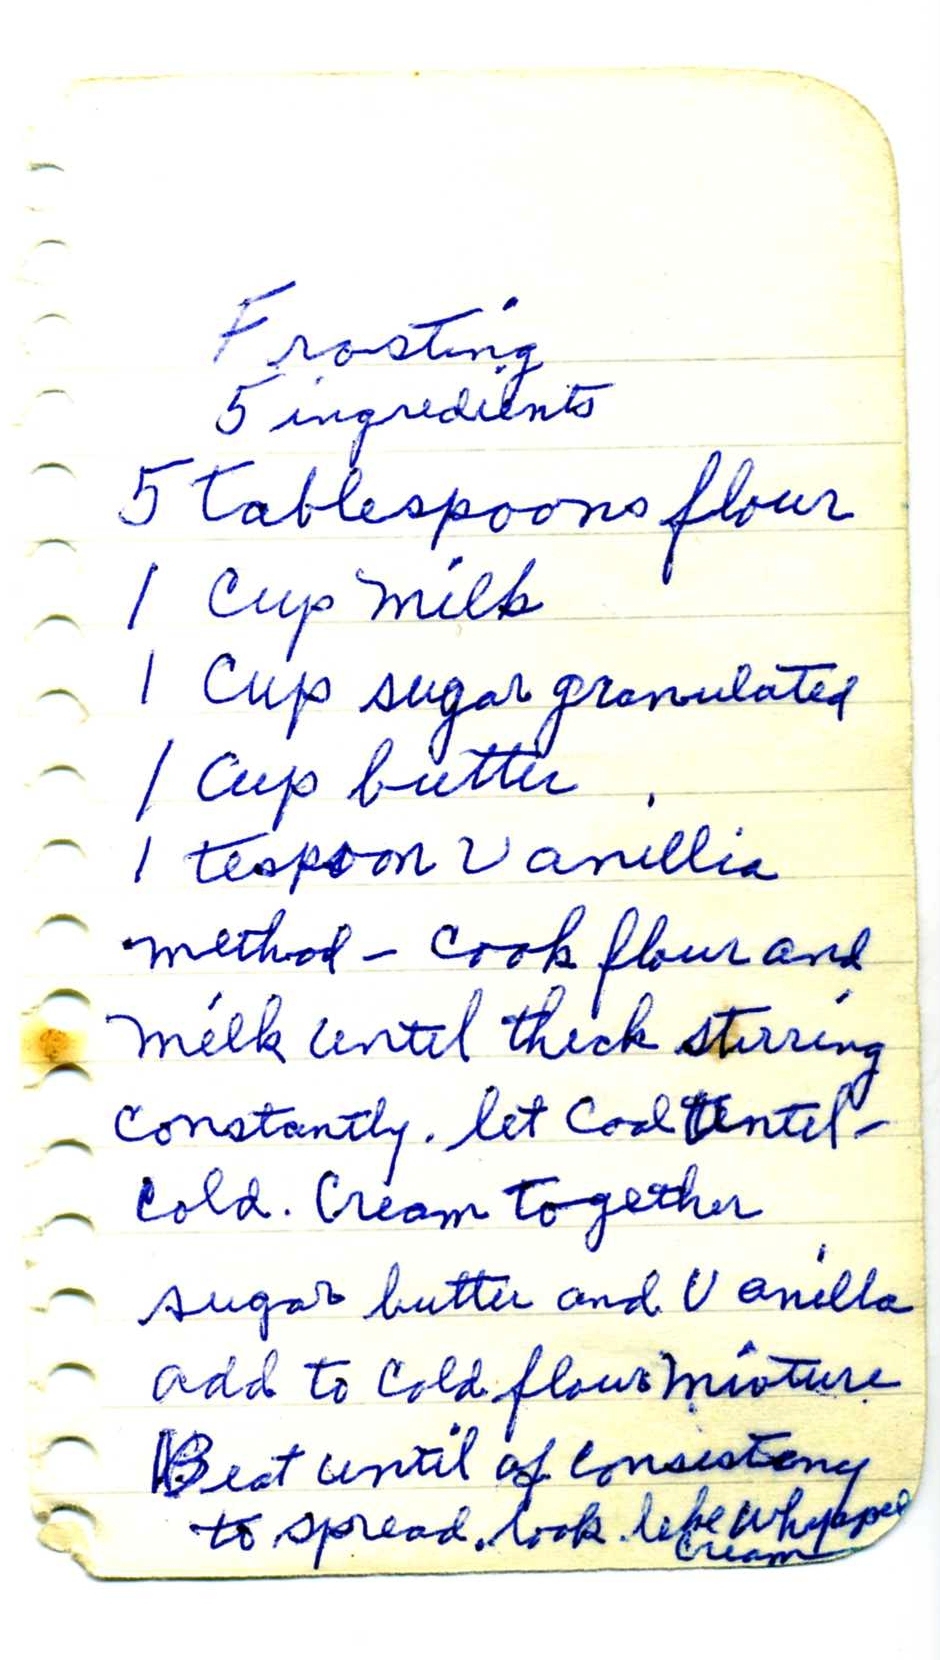 Frosting
5 ingredients
5 tablespoons flour
1 Cup milk
1 Cup sugar granulated
1 Cup butter
1 tespoon Vanillia
method - Cook flour and
milk until thick stirring
constantly. let Cool Until -
Cold. Cream together
sugar butter and Vanilla
add to Cold flour mixture
Beat until of consisteny
to spread. look like whipped
Cream